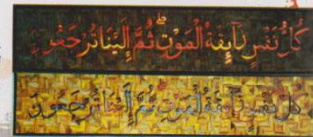 كُلُّ نَفْسٍ ذَآئِقَةُ الْمَوْتِ ۖ ثُمَّ إِلَيْنَا تُرْجَعُونَ
كُلُّ نَفْسٍ ذَآئِقَةُ الْمَوْتِ ثُمَّ إِلَيْنَا تُرْجَعُونَ